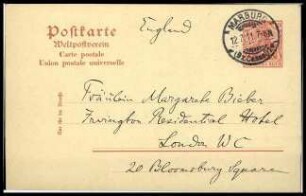 Postkarte
Weltpostverein
Carte postale
Union postale universelle
England
MARBURG
12.
Fräulein Margarete Bieber
Irvington Residential Hotel
London WC
20 Bloomsbury Square